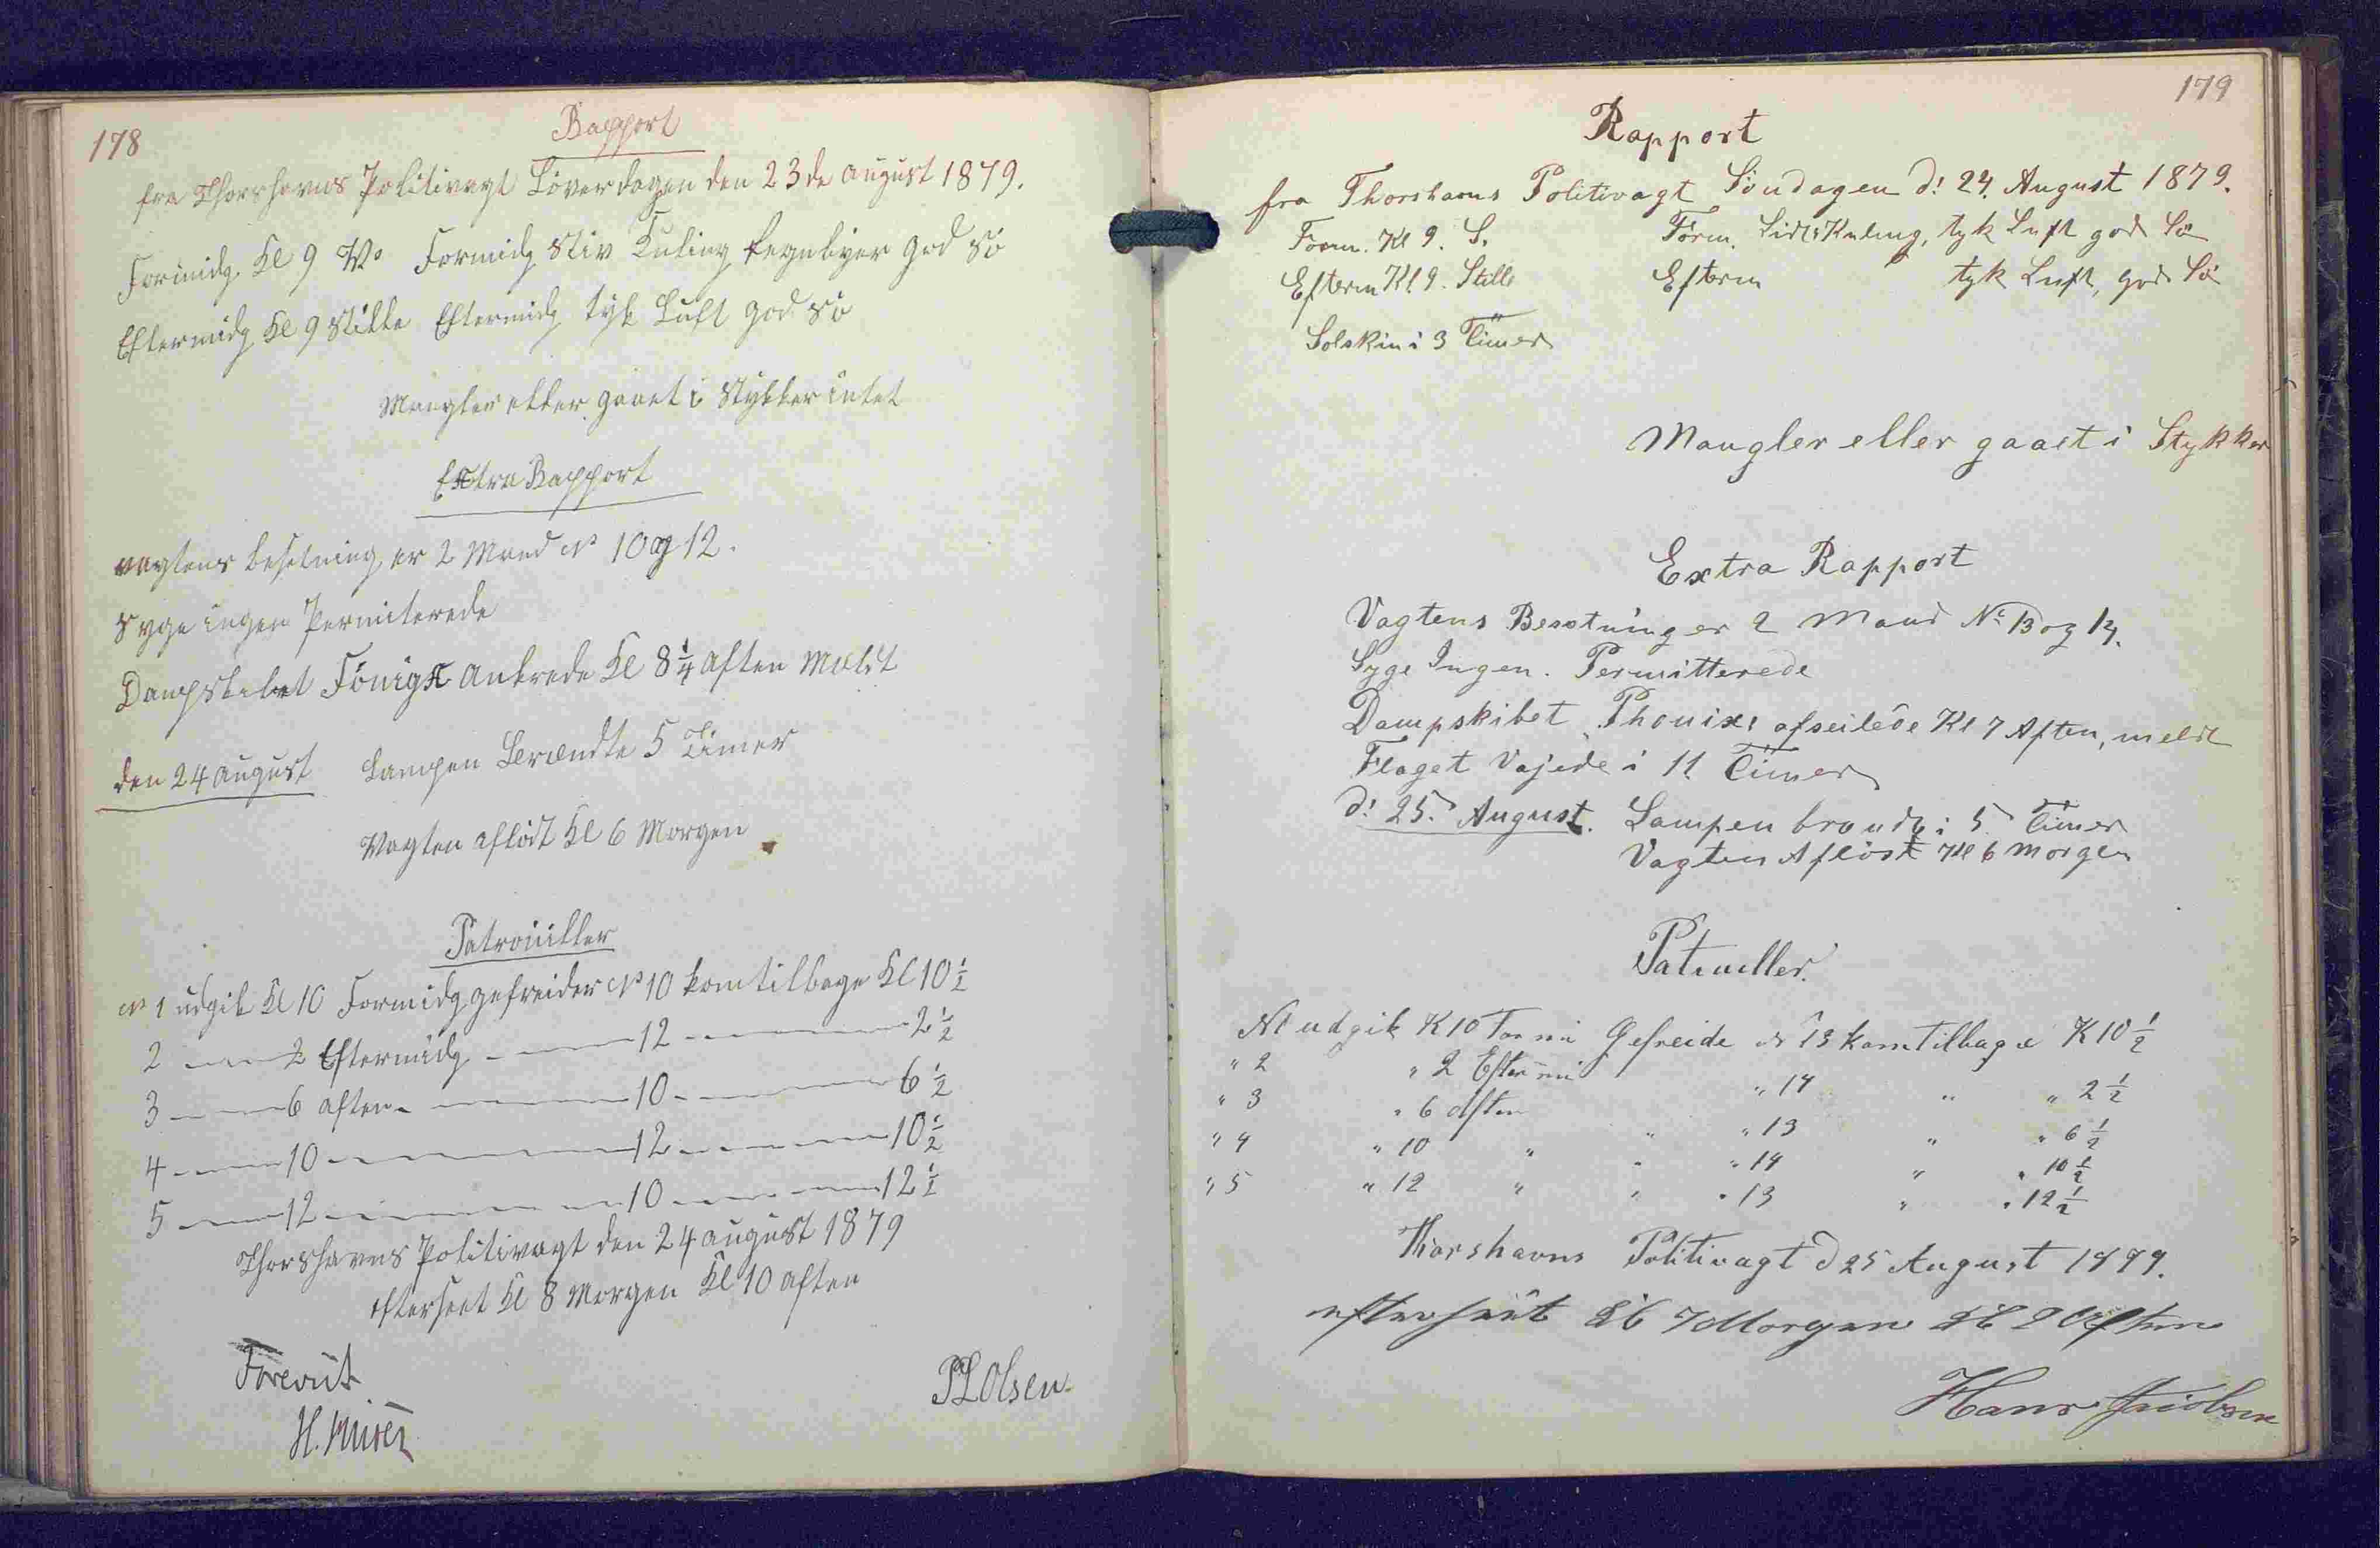 178
Rapport
fra Thorshavns Politivagt Löverdagen den 23de August 1879.
Formidg. Kl 9 Formidg Stiv Kuling god Sö
Eftermidg Kl 9 Stille Eftermidg tyk Luft god Sö
Mangler eller gaaet i Stykker intet
Extra Rapport
Vagtens Besetning er 2 Mand No 10 og 12.
Syge ingen Permiterede
Dampskibet Fönigx Ankrede Kl 8 1/4 Aften Meldt
den 24 August Lampen Brændte 5 Timer
Vagten aflöst Kl 6 Morgen
Patrouiller
No 1 udgik Kl 10 Formidg gefreider No 10 kom tilbage Kl 10 1/2
2 — 2 Eftermidg — 12 — 2 1/2
3 — 6 Aften — 10 — 6 1/2
4 — 10 — 12 — 10 1/2
5 — 12 — 10 — 12 1/2
Thorshavns Politivagt den 24 August 1879
efterseet Kl 8 Morgen Kl 10 Aften
Forevist
H.
PLOlsen
179
Rapport
fra Thorshavns Politivagt Söndagen d: 24. August 1879.
Form. Kl 9. S. Form. Lidt Kuling, tyk Luft god Sö
Efterm Kl 9. Stille Efterm tyk Luft, god Sö
Solskin i 3 Timer
Mangler eller gaaet i Stykker
Extra Rapport
Vagtens Besetning er 2 Mand No 13 og 14.
Syge Ingen. Permitterede
Dampskibet Phönix afseilede Kl 7 Aften, meldt
Flaget Vajede i 11 Timer
d: 25. August. Lampen brændt i 5 Timer
Vagten Aflöst Kl 6 Morgen
Patruller.
N1 udgik K 10 Formi Gefreide No 13 kom Tilbage K 10 1/2
" 2 " 2 Eftermi " 14 " " 2 1/2
" 3 " 6 Aften " " 13 " " 6 1/2
" 4 " 10 " " " 14 " " 10 1/2
" 5 " 12 " " " 13 " " 12 1/2
Thorshavns Politivagt d 25 August 1879.
efterseet Kl 7 Morgen Kl 9 Aften
Hans Jacobsen